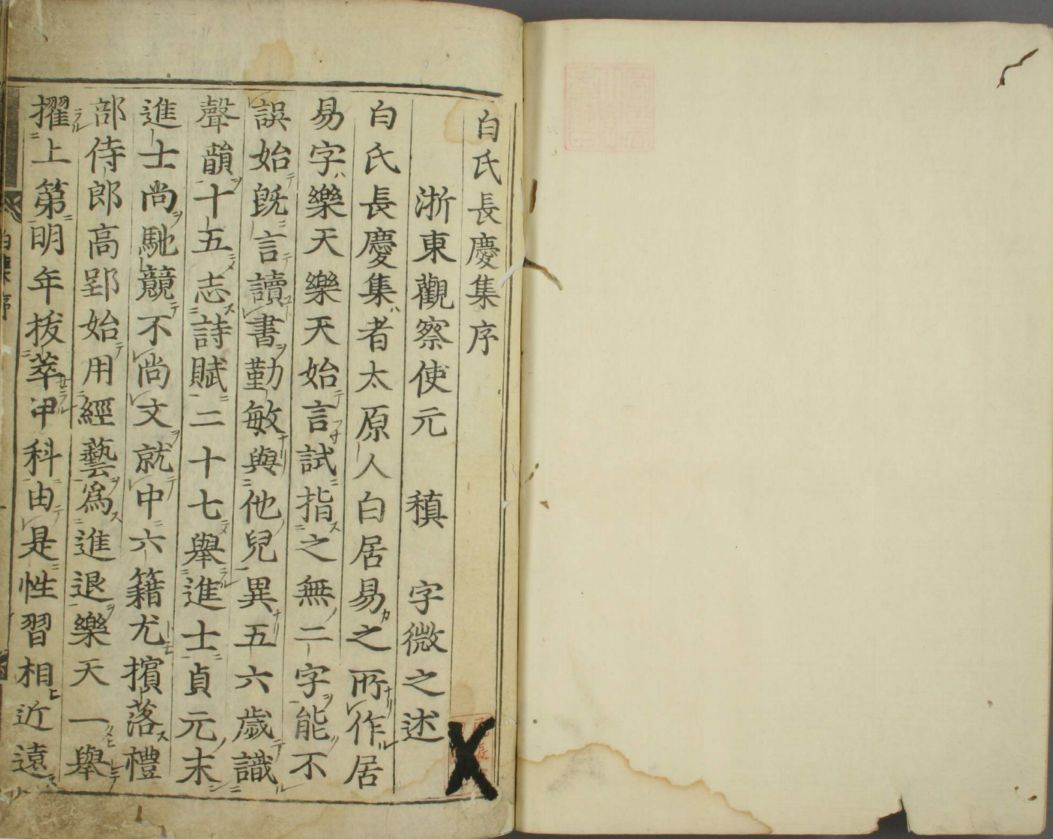 白氏長慶集序
浙東觀察使元　稹　字微之述
白氏長慶集者太原人白居易之所作居
易字樂天樂天始言試指之無二字能不
誤始既言讀書勤敏與他兒異五六歲識
聲韻十五志詩賦二十七舉進士貞元末
進士尚馳競不尚文就中六籍尤擯落禮
部侍郎高郢始用經藝爲進退樂天一舉
擢上第明年拔萃甲科由是性習相近遠